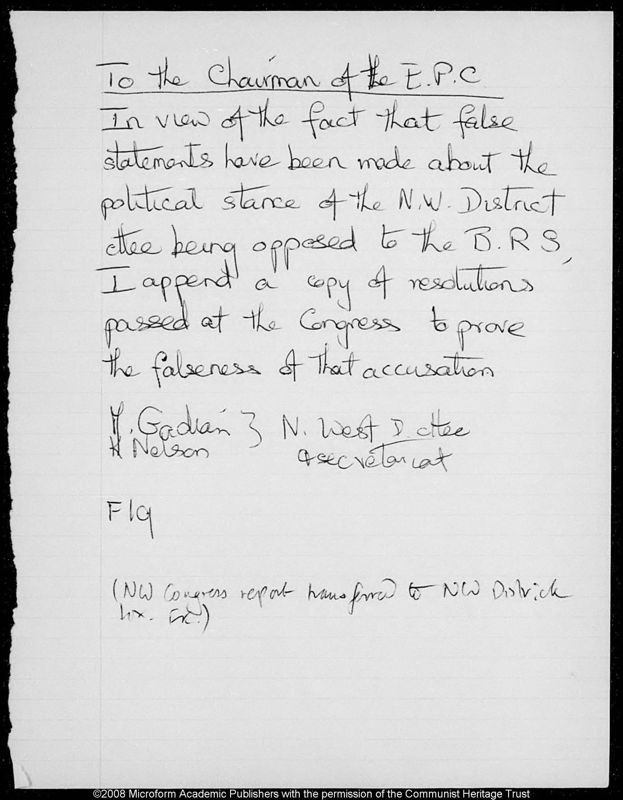 To the Chairman of the E.P.C
In view of the fact that false
statements have been made about the
political stance of the N.W. District
cttee being opposed to the B.R.S,
I append a copy of resolutions
passed at the Congress to prove
the falseness of that accusation
M. Gadian } N. West D. cttee
H Nelson & secretariat
F/9
(NW Congress report transferred to NW District
©2008 Microform Academic Publishers with the permission of the Communist Heritage Trust